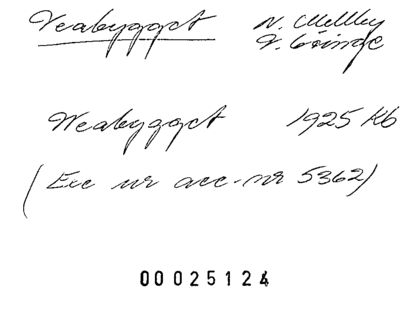 Veabygget N. Mellby
V. Göinge
Weabygget 1925 Kb
(Exc ur acc-nr 5362)
00025124